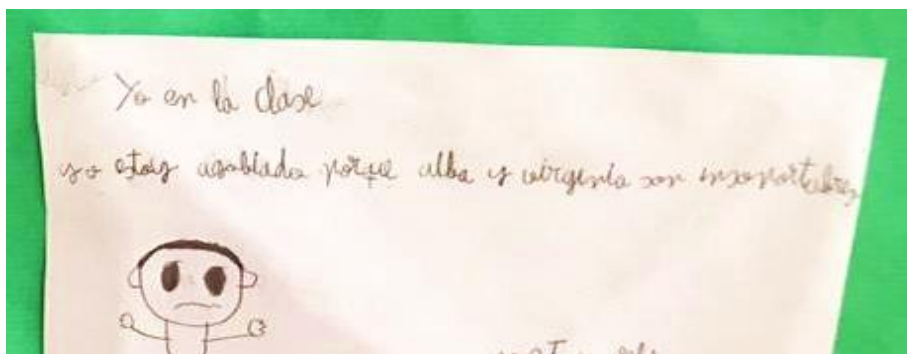 Yo en la clase
yo estoy agobiado porque alba y virginia son insoportables